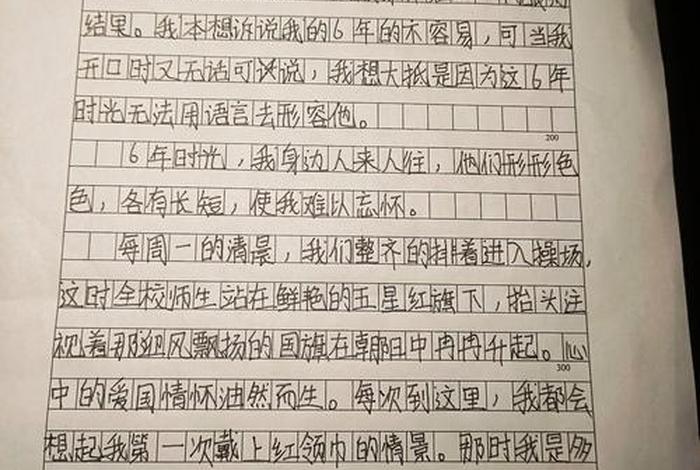 结果。我本想诉说我的6年的不容易，可当我
开口时又无话可说，我想大抵是因为这6年
时光无法用语言去形容他。
200
6年时光，我身边人来人往，他们形形色
色，各有长短，使我难以忘怀。
每周一的清晨，我们整齐的排着进入操场，
这时全校师生站在鲜艳的五星红旗下，抬头注
视着那迎风飘扬的国旗在朝日中冉冉升起。心
300
中的爱国情怀油然而生。每次到这里，我都会
想起我第一次戴上红领巾的情景。那时我是多